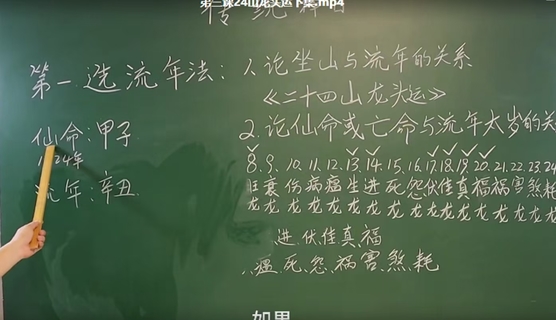 第三课24山龙头运下集.mp4
传统择日
第一选流年法：1.论坐山与流年的关系
《二十四山龙头运》
仙命：甲子 2.论仙命或亡命与流年太岁的关
1924年
8.9.10.11.12.13.14.15.16.17.18.19.20.21.22.23.24
衰伤病瘟生进死怨伏佳真福祸害煞耗
龙龙龙龙龙龙龙龙龙龙龙龙龙龙龙龙龙
流年：辛丑
进伏佳真福
瘟、死、怨、祸害、煞耗
如果